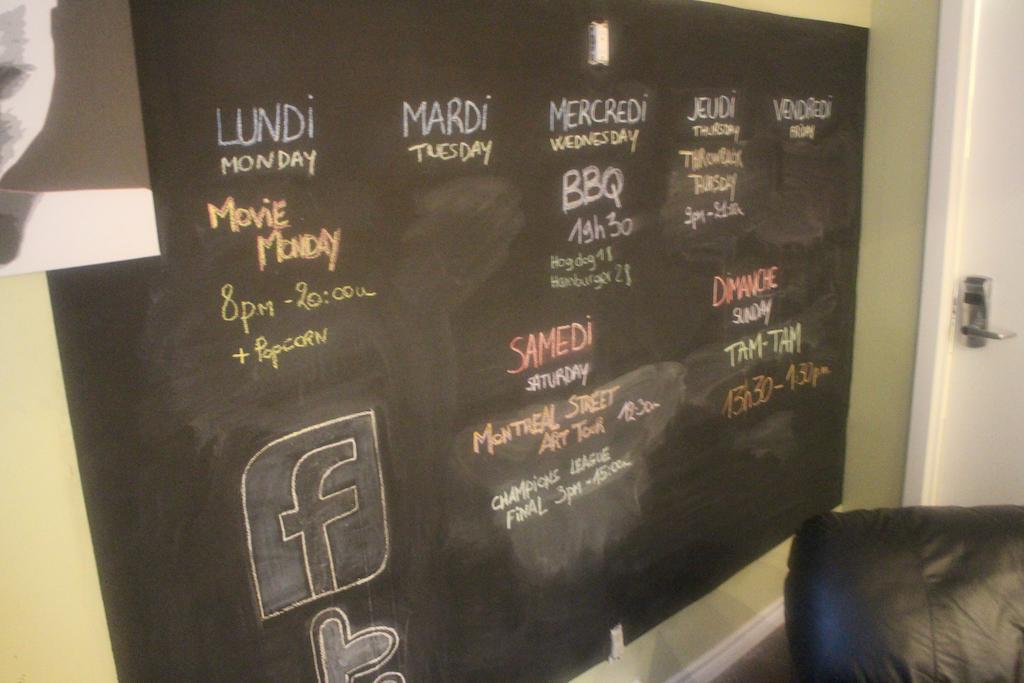 LUNDi
MONDAY
MOViE
MONDAY
8pm - 20:00
+ POPCORN
MARDi
TUESDAY
MERCREDi
WEDNESDAY
BBQ
19h30
Hogdog 1$
Hamburger 2$
JEUDi
THURSDAY
THROWBACK
TUASDAY
9pm -
VENDREDi
FRiDAY
SAMEDi
SATURDAY
MONTREAL STREET
ART TOUR
CHAMPiONS LEAGUE
FiNAL 3pm - 15:00
DiMANCHE
SUNDAY
TAM-TAM
13h30 - 1:30pm
f
t